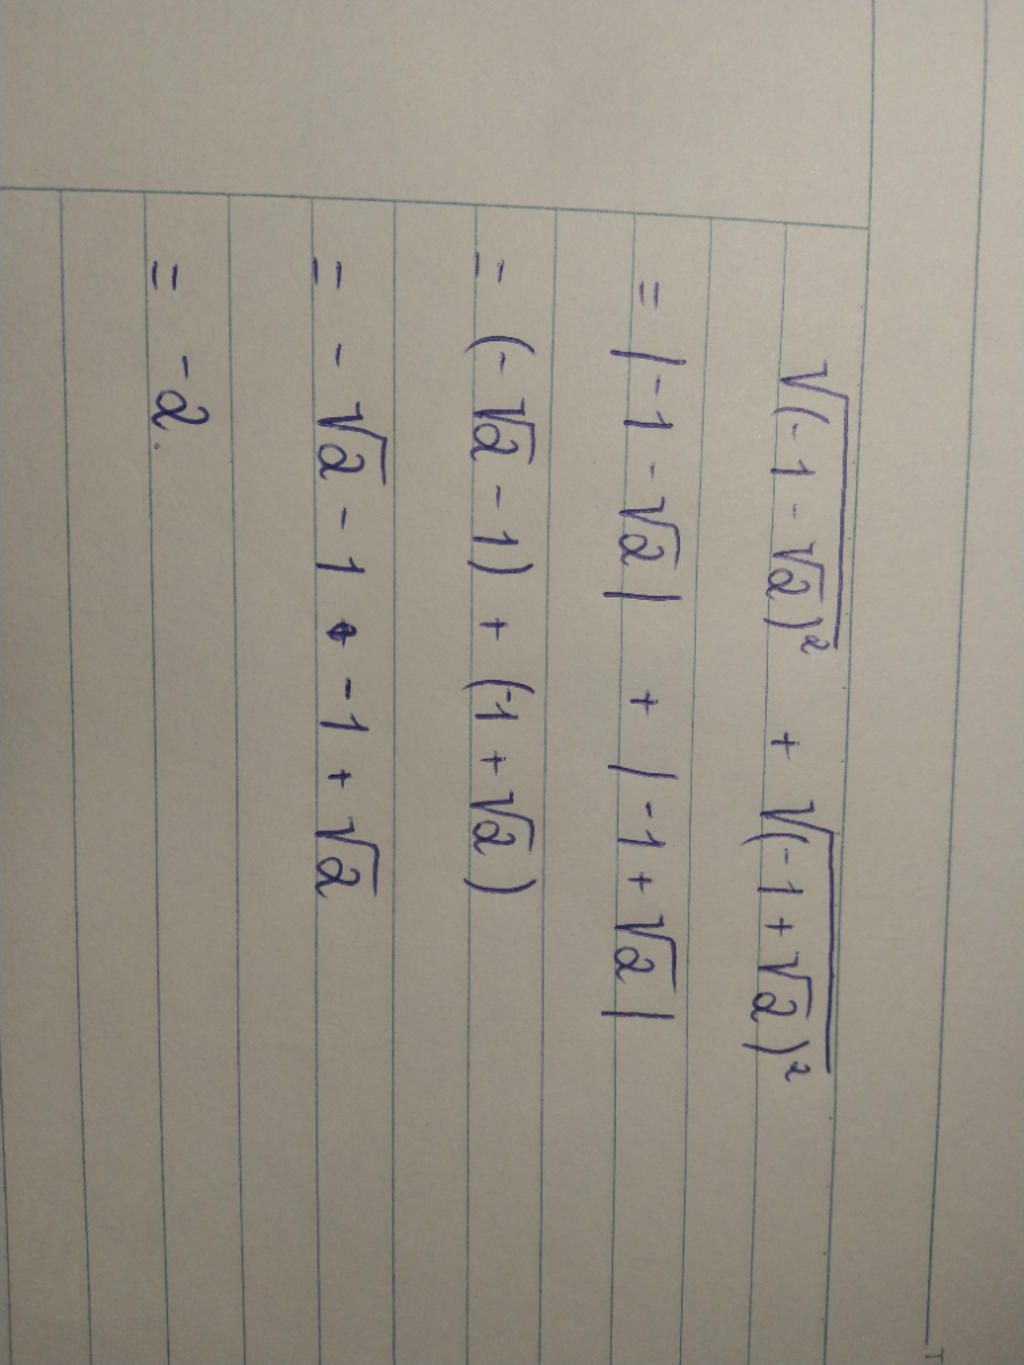 √(-1-√2)² + √(-1+√2)²
= |-1-√2| + |-1+√2|
= (-√2-1) + (-1+√2)
= -√2-1+-1+√2
= -2.